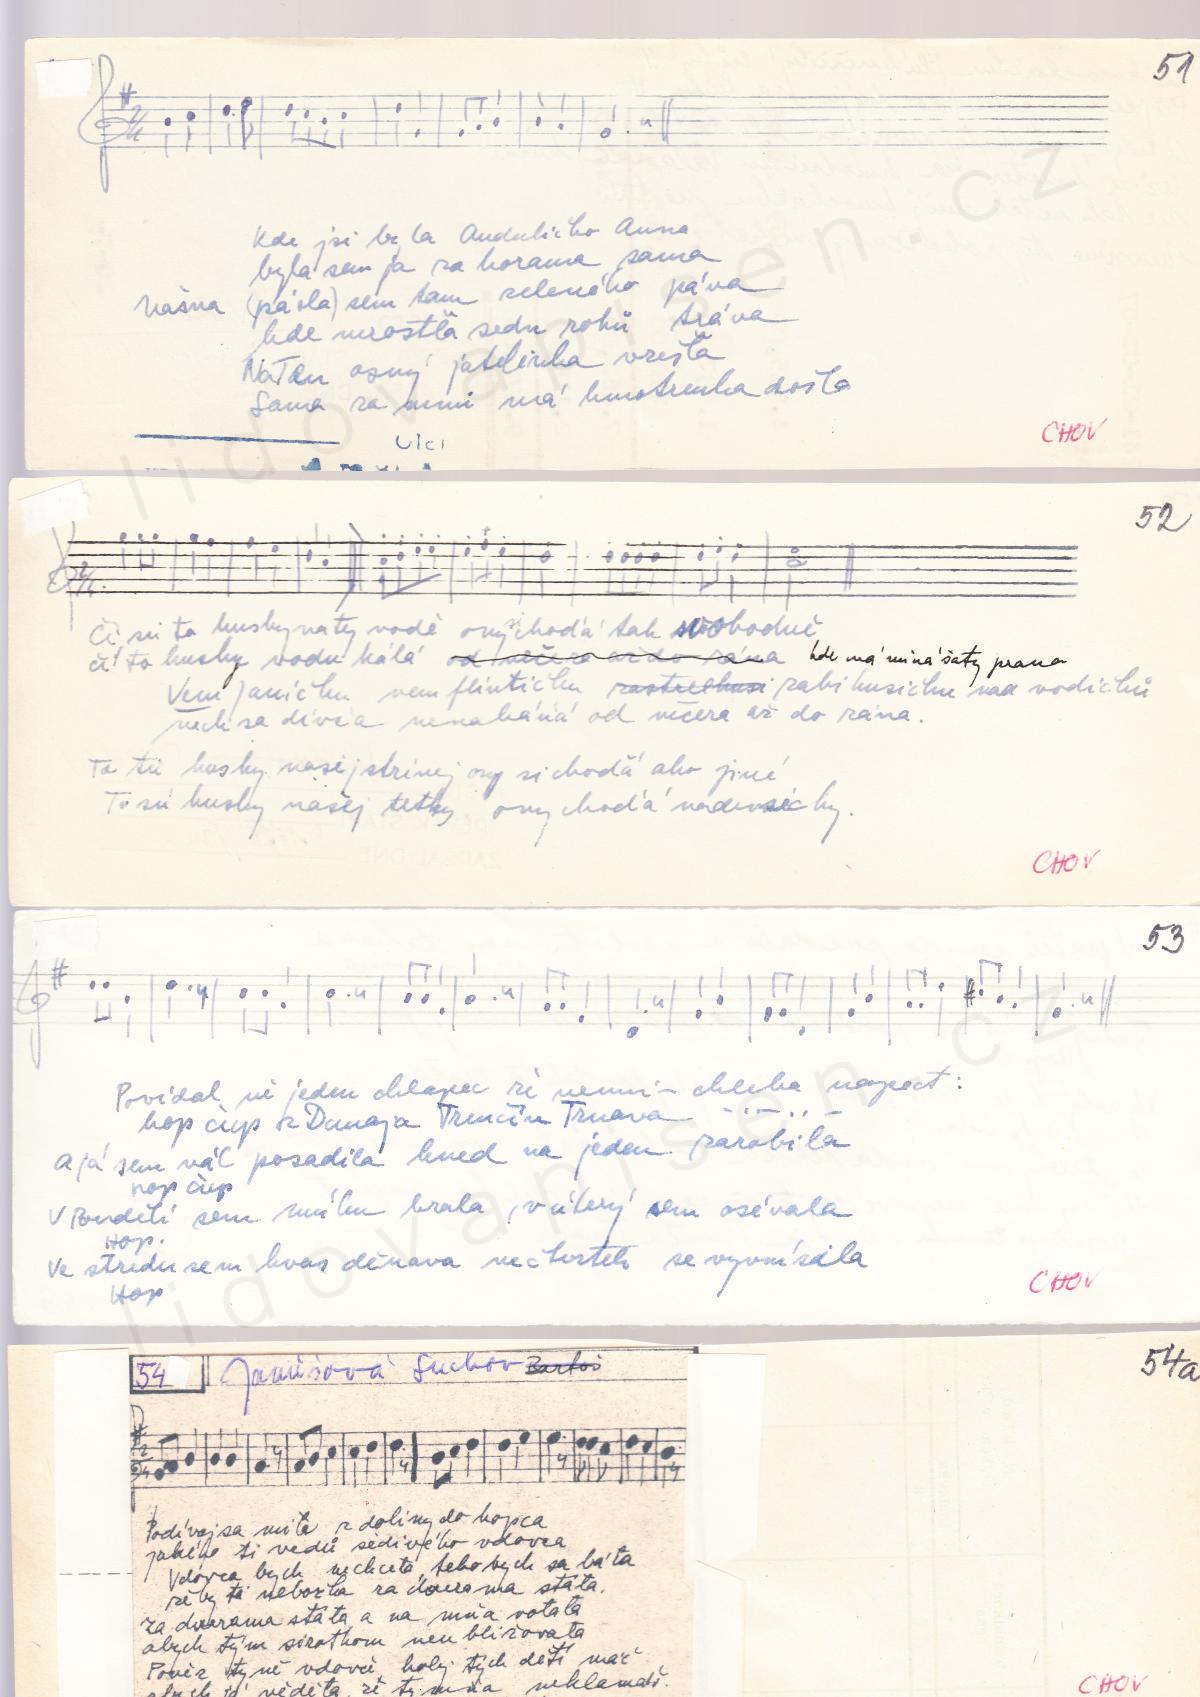 51
Kde jsi byla Anduličko Anna
byla sem ja za horama sama
našna (pásla) sem tam zeleného páva
kde nerostla sedn roků tráva
Na ten osmý jatelinka vzešła
Sama za mnú má kmotrenka došla
CHOV
52
Čí sú to husky na tej vodě ony si chodá tak svobodně
čí to husky vodu kálá od večera až do rána kde má miná šaty prana
Vem Janíčku vem flintičku zastrel husi zabi husičku nad vodičkú
nech sa divča nenahá od večera až do rána.
To sú husky našej strínej ony si chodá ako jiné
To sú husky našej tetky ony chodá na všecky.
CHOV
53
Povídal ně jeden chlapec že nemní chleba napect:
hop cup z Dunaja Trenčín Trnava
a já sem náč posadila hned na jeden zarobila
hop cup
V Pondělí sem múku brala, v úterý sem osévala
Hop.
Ve stredu sem kvas dělnava ve čtvrtek se vymísila
Hop
CHOV
54 Janušová Suchov Bartoš
54a
Podívaj sa milá z doliny do kopca
jakého ti vedú sedivého vdovca
Vdovca bych nechcela, teho bych sa bála
že by tá nebožka za dverama stála.
Za dverama stála a na mňa volala
abych tým sirotkom neubližovala
Pověz ty ně vdovče, kolej tých dětí máš
abych já věděla, že ty mňa neklamáš.
CHOV
lidovapisen.cz